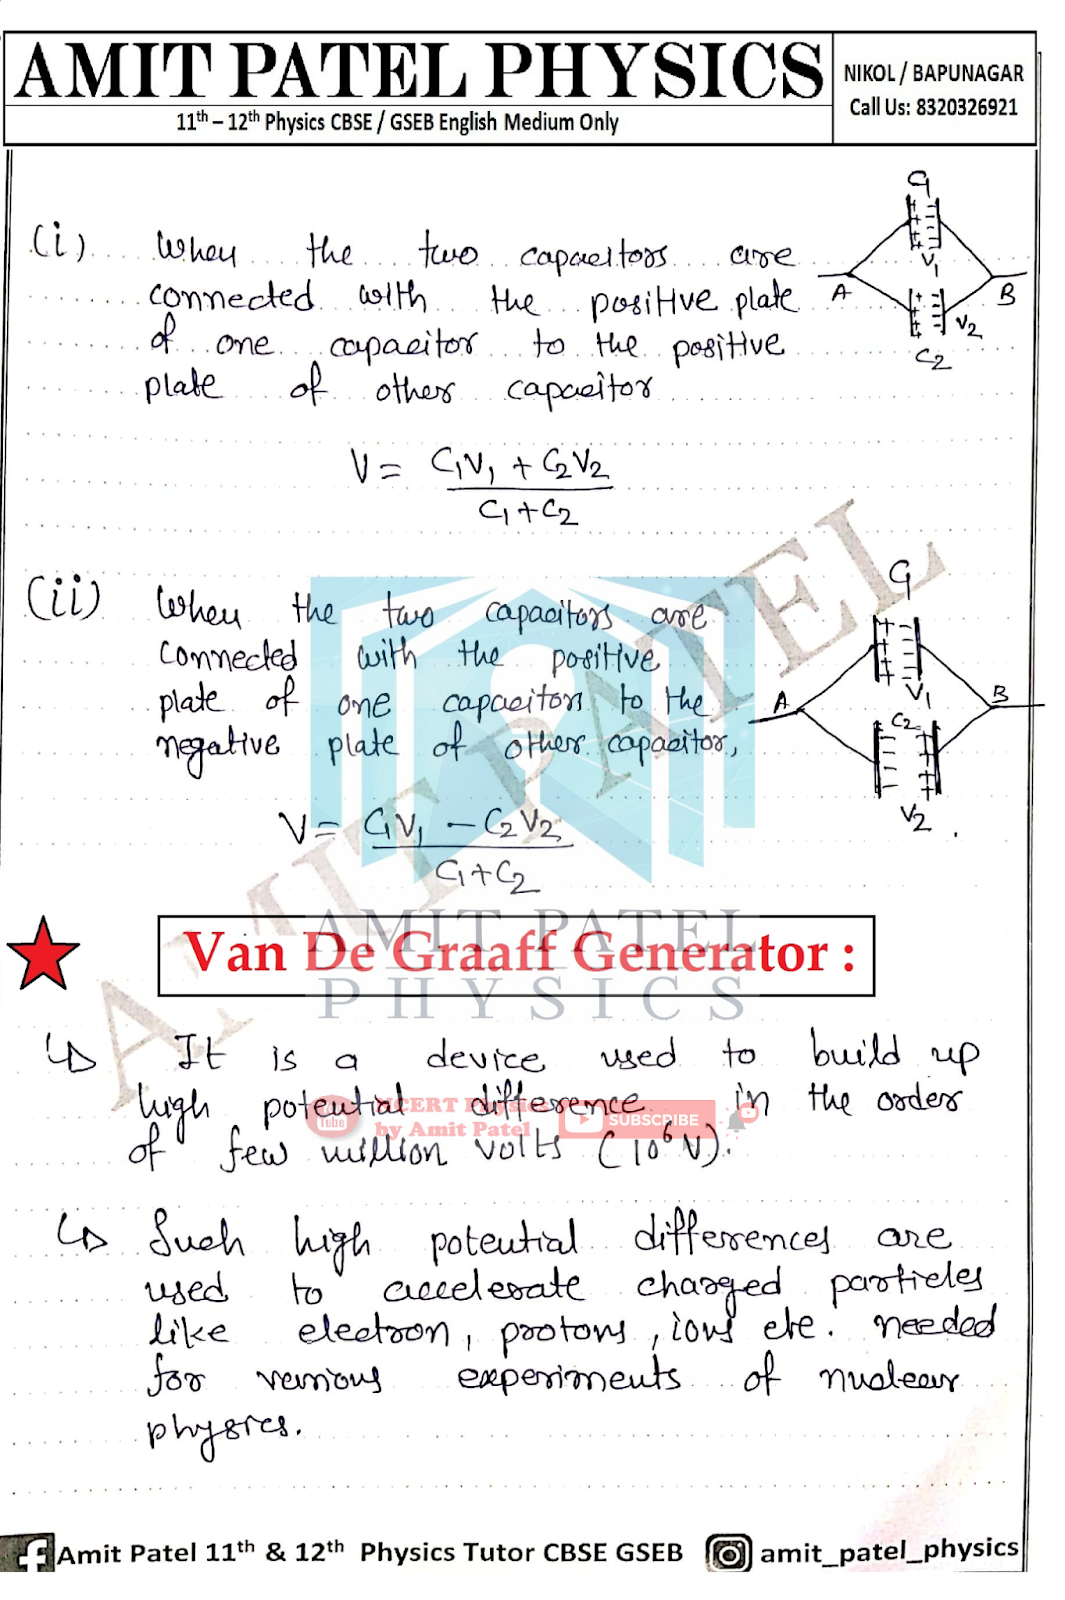 AMIT PATEL PHYSICS
11th – 12th Physics CBSE / GSEB English Medium Only
NIKOL / BAPUNAGAR
Call Us: 8320326921
(i) When the two capacitors are
connected with the positive plate
of one capacitor to the positive
plate of other capacitor
C1
V1
A B
V2
C2
V = C1V1 + C2V2
C1 + C2
(ii) When the two capacitors are
connected with the positive
plate of one capacitor to the
negative plate of other capacitor,
C1
V1
A B
C2
V2
V = C1V1 – C2V2
C1 + C2
AMIT PATEL
AMIT PATEL
PHYSICS
Van De Graaff Generator :
↳ It is a device used to build up
high potential difference in the order
of few million volts (10⁶ V).
NCERT Physics
by Amit Patel
Tube
SUBSCRIBE
↳ Such high potential differences are
used to accelerate charged particles
like electron, protons, ions etc. needed
for various experiments of nuclear
physics.
Amit Patel 11th & 12th Physics Tutor CBSE GSEB
amit_patel_physics